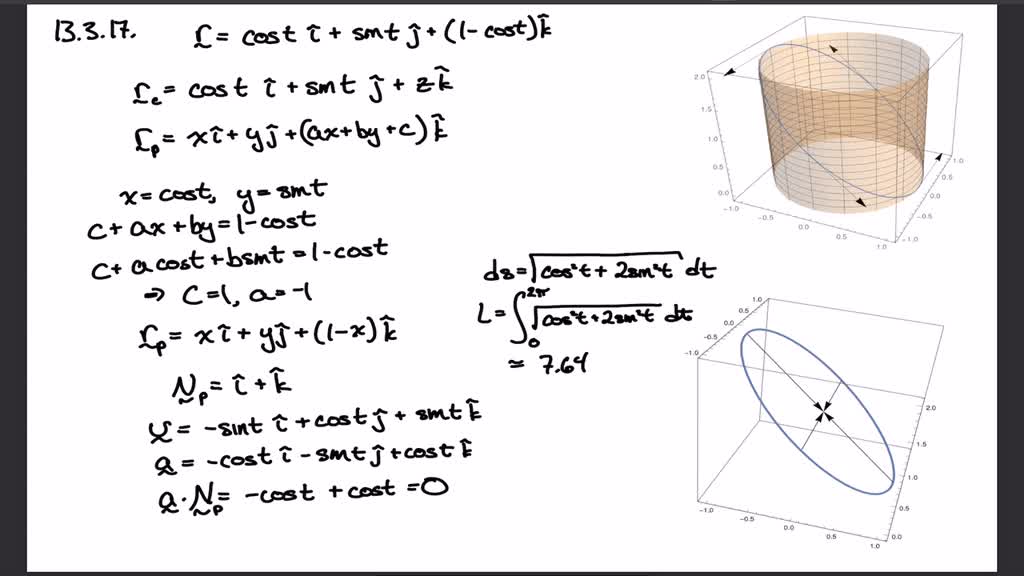 13.3.17. r = cost î + sint ĵ + (1-cost)k̂
r_c = cost î + sint ĵ + zk̂
r_p = xî + yĵ + (ax+by+c)k̂
x = cost, y = sint
c + ax + by = 1-cost
c + acost + bsint = 1-cost
⇒ c=1, a=-1
r_p = xî + yĵ + (1-x)k̂
N_p = î + k̂
v = -sint î + cost ĵ + sint k̂
a = -cost î - sint ĵ + cost k̂
a·N_p = -cost + cost = 0
ds = √(cos²t + 2sin²t) dt
L = ∫₀^2π √(cos²t + 2sin²t) dt
≃ 7.64
2.0
1.5
1.0
0.5
0.0
-1.0
-0.5
0.0
0.5
1.0
-1.0
-0.5
0.0
0.5
1.0
1.0
0.5
0.0
-0.5
-1.0
2.0
1.5
1.0
0.5
0.0
-1.0
-0.5
0.0
0.5
1.0